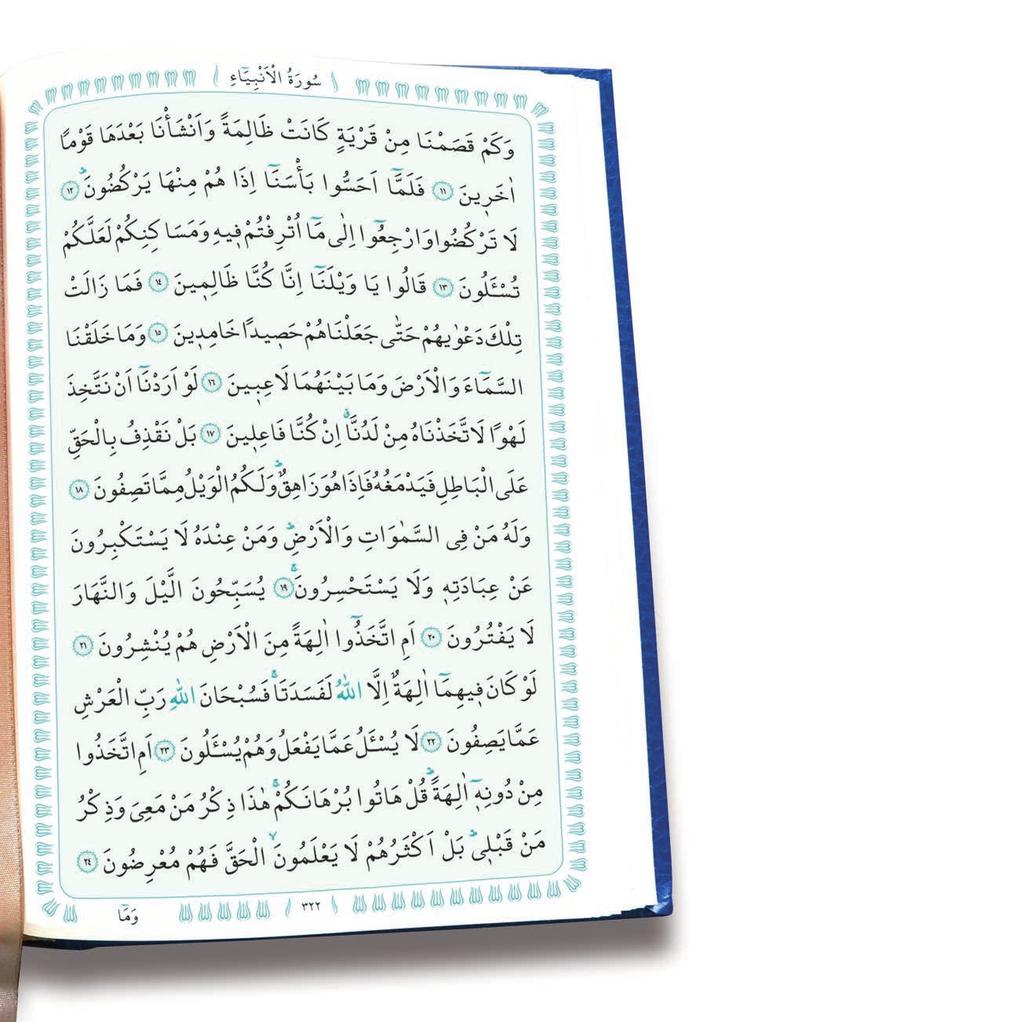 سُورَةُ الْاَنْبِيَٓاءِ
وَكَمْ قَصَمْنَا مِنْ قَرْيَةٍ كَانَتْ ظَالِمَةً وَاَنْشَأْنَا بَعْدَهَا قَوْمًا
اٰخَر۪ينَ ١١ فَلَمَّٓا اَحَسُّوا بَأْسَنَٓا اِذَا هُمْ مِنْهَا يَرْكُضُونَۜ ١٢
لَا تَرْكُضُوا وَارْجِعُٓوا اِلٰى مَٓا اُتْرِفْتُمْ ف۪يهِ وَمَسَاكِنِكُمْ لَعَلَّكُمْ
تُسْـَٔلُونَ ١٣ قَالُوا يَا وَيْلَنَٓا اِنَّا كُنَّا ظَالِم۪ينَ ١٤ فَمَا زَالَتْ
تِلْكَ دَعْوٰيهُمْ حَتّٰى جَعَلْنَاهُمْ حَص۪يدًا خَامِد۪ينَ ١٥ وَمَا خَلَقْنَا
السَّمَٓاءَ وَالْاَرْضَ وَمَا بَيْنَهُمَا لَاعِب۪ينَ ١٦ لَوْ اَرَدْنَٓا اَنْ نَتَّخِذَ
لَهْوًا لَاتَّخَذْنَاهُ مِنْ لَدُنَّاۗ اِنْ كُنَّا فَاعِل۪ينَ ١٧ بَلْ نَقْذِفُ بِالْحَقِّ
عَلَى الْبَاطِلِ فَيَدْمَغُهُ فَاِذَا هُوَ زَاهِقٌۜ وَلَكُمُ الْوَيْلُ مِمَّا تَصِفُونَ ١٨
وَلَهُ مَنْ فِي السَّمٰوَاتِ وَالْاَرْضِۜ وَمَنْ عِنْدَهُ لَا يَسْتَكْبِرُونَ
عَنْ عِبَادَتِه۪ وَلَا يَسْتَحْسِرُونَۚ ١٩ يُسَبِّحُونَ الَّيْلَ وَالنَّهَارَ
لَا يَفْتُرُونَ ٢٠ اَمِ اتَّخَذُٓوا اٰلِهَةً مِنَ الْاَرْضِ هُمْ يُنْشِرُونَ ٢١
لَوْ كَانَ ف۪يهِمَٓا اٰلِهَةٌ اِلَّا اللّٰهُ لَفَسَدَتَاۚ فَسُبْحَانَ اللّٰهِ رَبِّ الْعَرْشِ
عَمَّا يَصِفُونَ ٢٢ لَا يُسْـَٔلُ عَمَّا يَفْعَلُ وَهُمْ يُسْـَٔلُونَ ٢٣ اَمِ اتَّخَذُوا
مِنْ دُونِه۪ٓ اٰلِهَةًۜ قُلْ هَاتُوا بُرْهَانَكُمْۚ هٰذَا ذِكْرُ مَنْ مَعِيَ وَذِكْرُ
مَنْ قَبْل۪يۜ بَلْ اَكْثَرُهُمْ لَا يَعْلَمُونَۙ الْحَقَّ فَهُمْ مُعْرِضُونَ ٢٤
٣٢٢
وَمَٓا